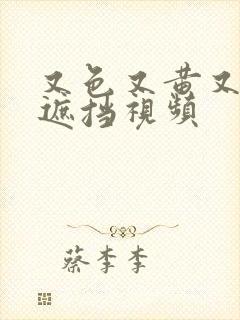 又色又黄又
遮挡視頻
蔡李李